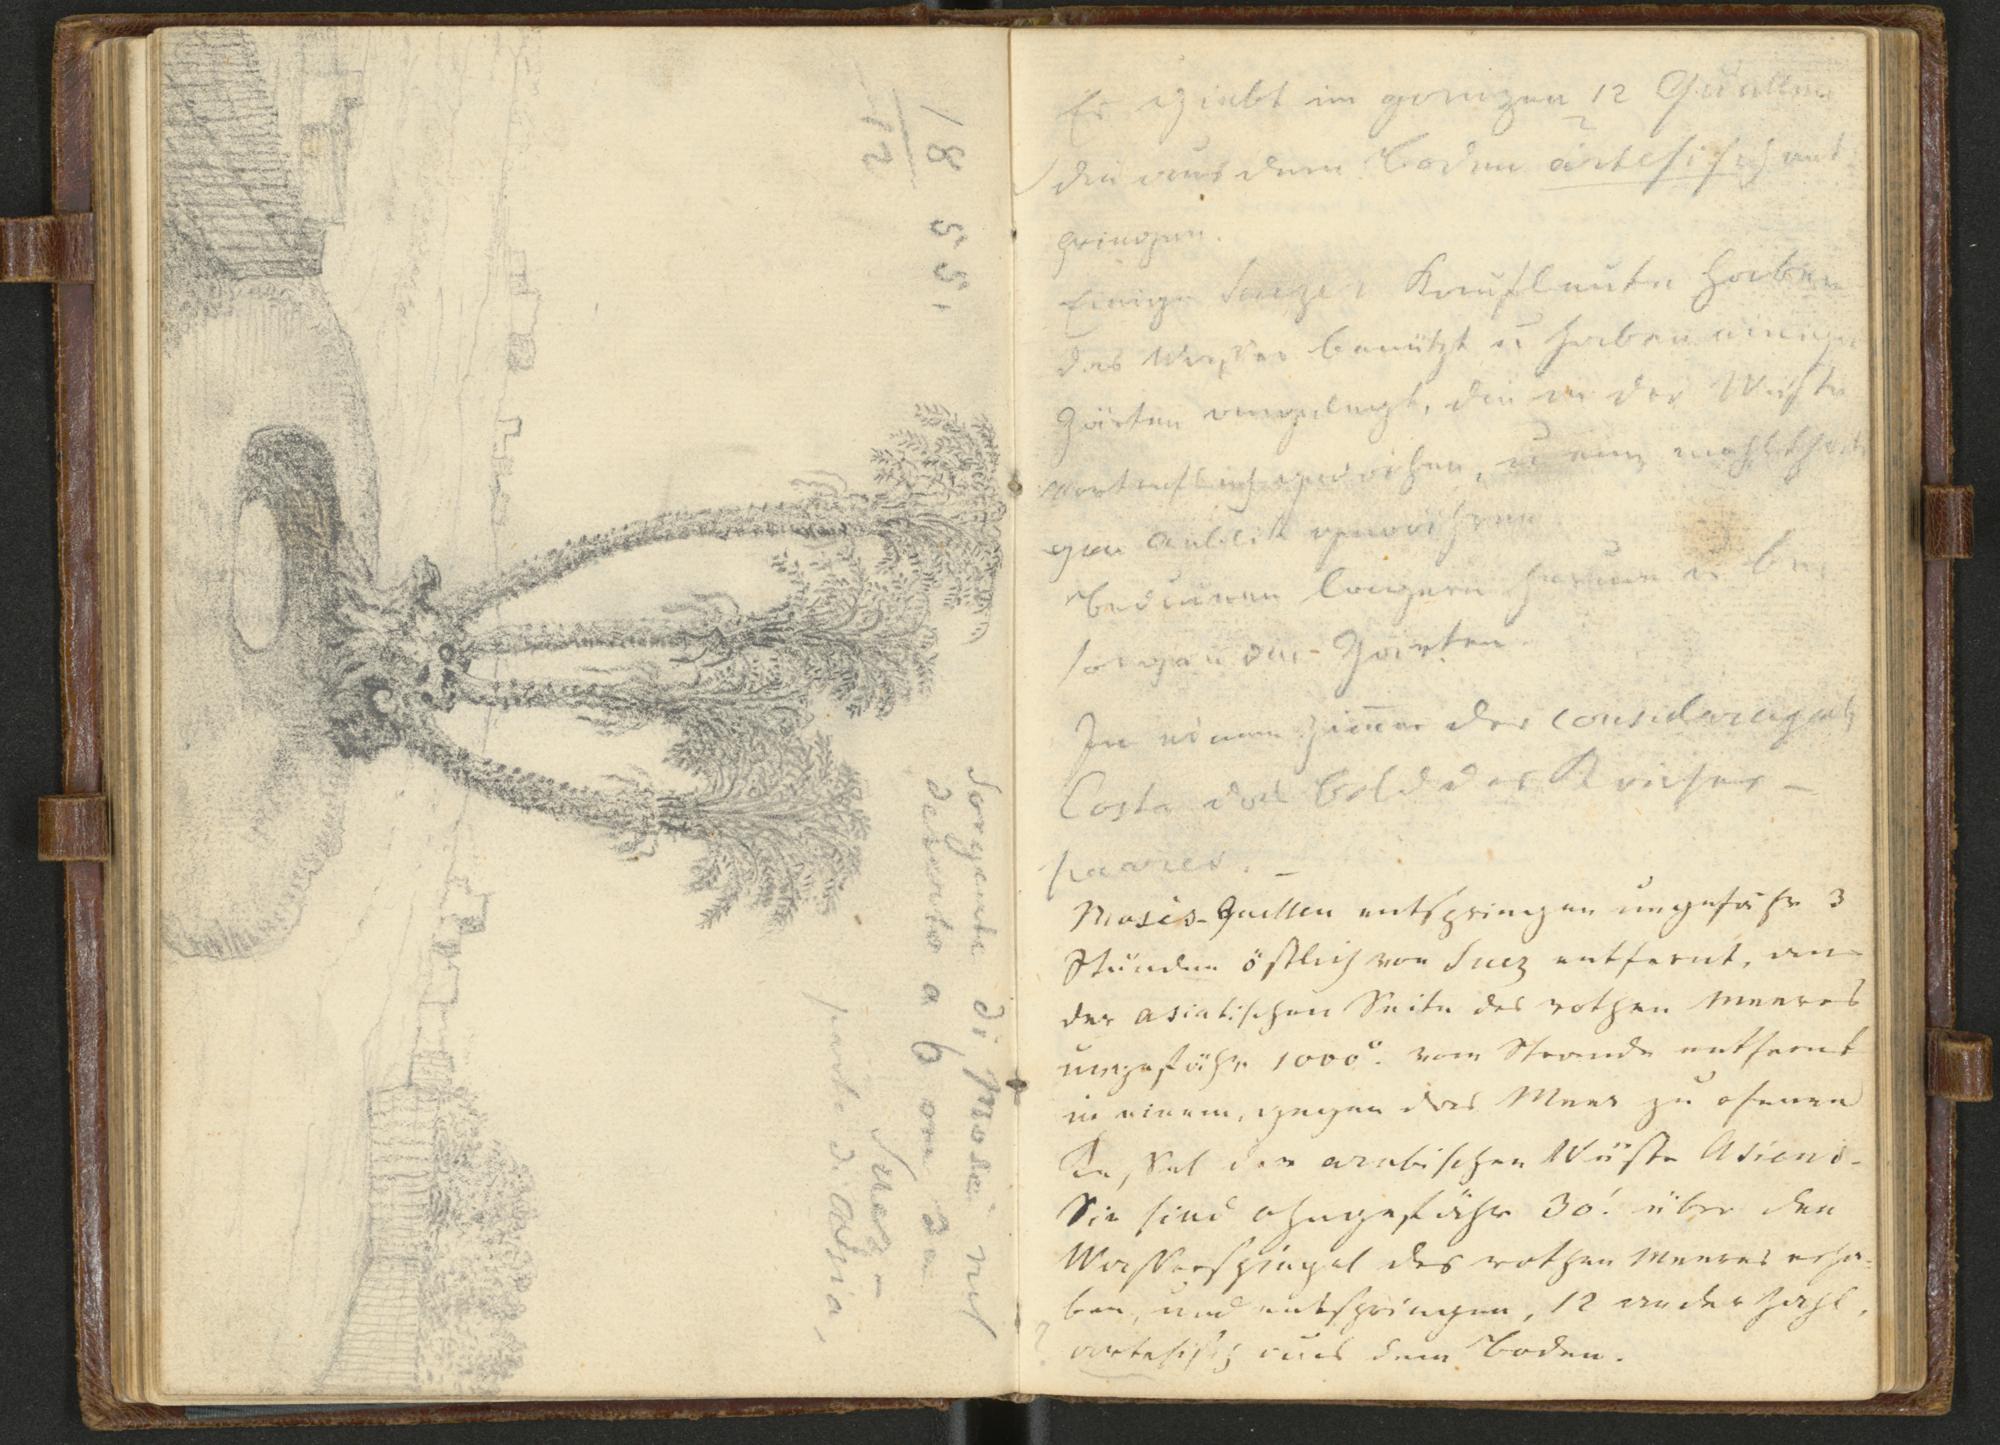 18 55.
12
Sorgente di Mosè nel
deserto a 6 ore da
Suez –
parte d'Asia,
Es giebt im ganzen 12 Quellen
die aus dem Boden artesisch ent
springen.
Einige Suezer Kaufleute haben
das Wasser benützt u haben einige
Gärten angelegt, die in der Wüste
vortreflich gedeihen, u einen
gen Anblick gewähren
Beduinen lagern herum u be
sorgen den Garten.
In einem Zimer des
Costa das Bild des Kaiser –
paares. –
Moses-Quellen entspringen ungefähr 3
Stunden östlich von Suez entfernt, an
der asiatischen Seite des rothen Meeres
ungefähr 1000°. vom Strande entfernt
in einem, gegen das Meer zu ofenen
Kessel der arabischen Wüste Asiens.
Sie sind ohngefähr 30'. über den
Wasserspiegel des rothen Meeres erha-
ben, und entspringen, 12 an der Zahl,
artesisch aus dem Boden.